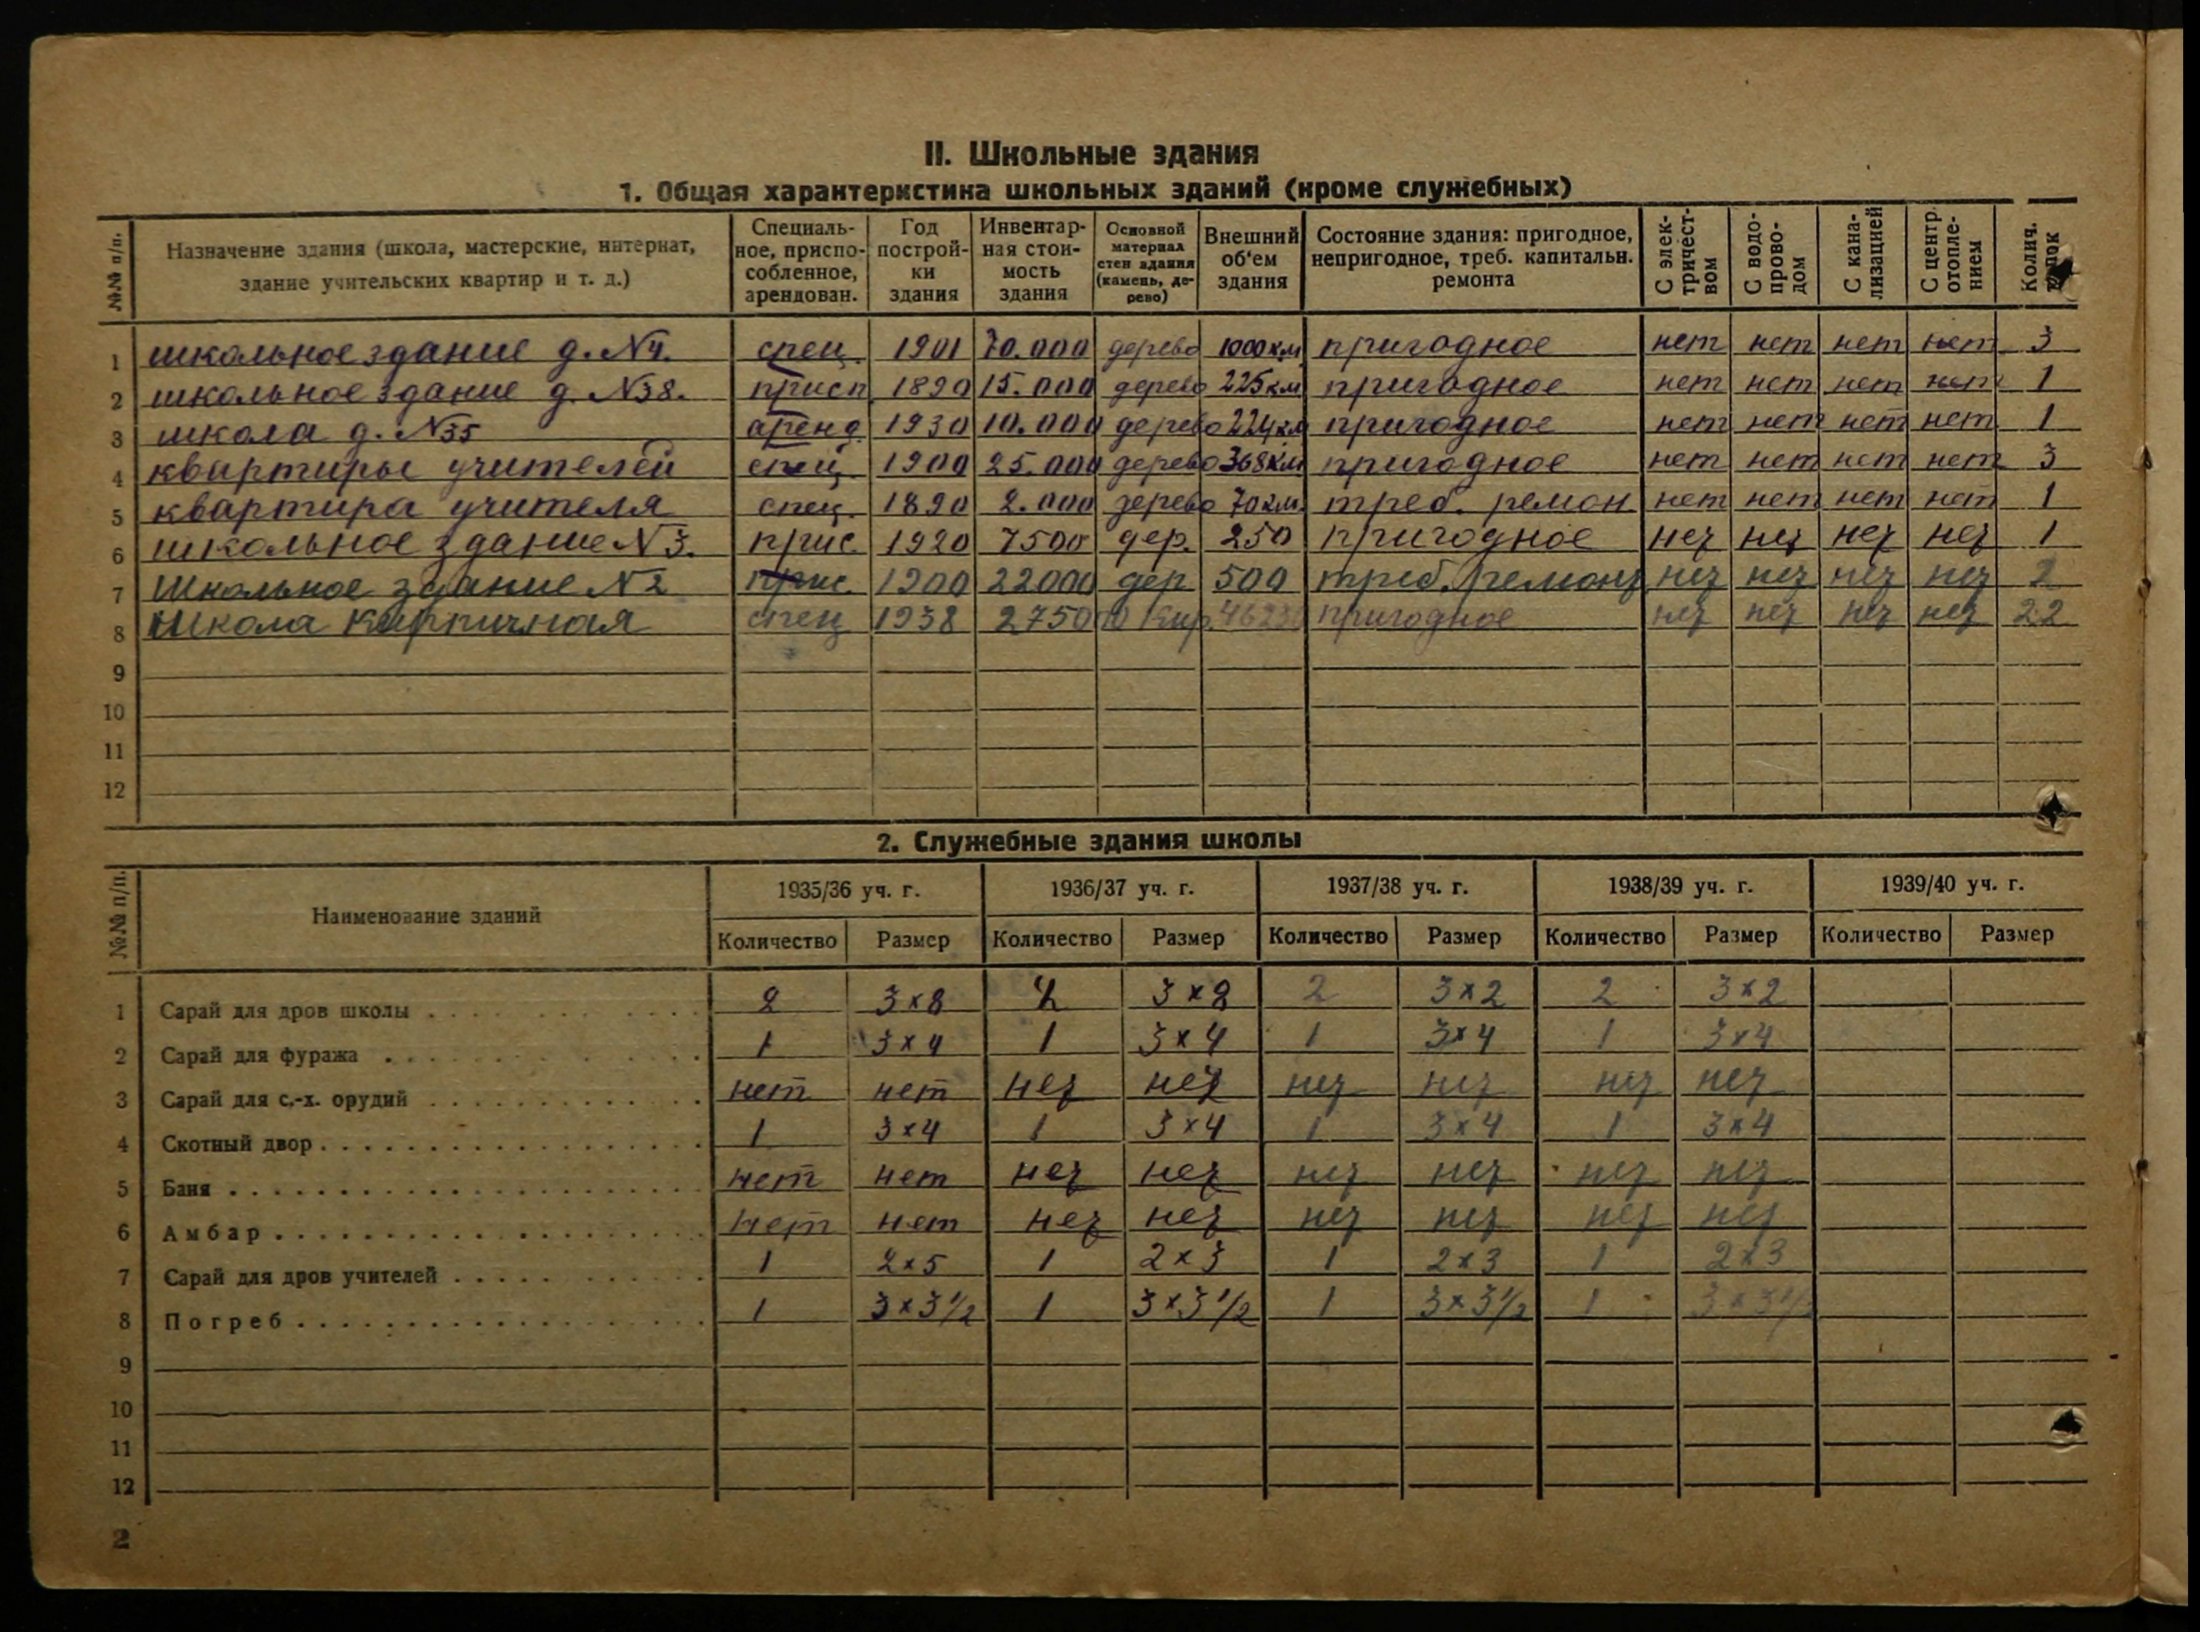 II. Школьные здания
1. Общая характеристика школьных зданий (кроме служебных)
№№ п/п. Назначение здания (школа, мастерские, интернат, здание учительских квартир и т. д.) Специальное, приспособленное, арендован. Год постройки здания Инвентарная стоимость здания Основной материал стен здания (камень, дерево) Внешний об'ем здания Состояние здания: пригодное, непригодное, треб. капитальн. ремонта С электричеством С водопроводом С канализацией С центр. отоплением Колич.
1 школьное здание д. №4. спец. 1901 70.000 дерево 1000 км пригодное нет нет нет нет 3
2 школьное здание д. №38. присп. 1890 15.000 дерево 225 км пригодное нет нет нет нет 1
3 школа д. №35 аренд. 1930 10.000 дерево 224 км пригодное нет нет нет нет 1
4 квартиры учителей спец. 1900 25.000 дерево 368 км пригодное нет нет нет нет 3
5 квартира учителя спец. 1890 2.000 дерево 70 км. треб. ремон нет нет нет нет 1
6 школьное здание №3. прис. 1920 7500 дер. 250 пригодное нет нет нет нет 1
7 Школьное здание №2 прис. 1900 22000 дер 500 треб. ремонт нет нет нет нет 2
8 Школа Кирпичная спец 1938 275000 Кир. пригодное нет нет нет нет 22
9
10
11
12
2. Служебные здания школы
№№ п/п. Наименование зданий 1935/36 уч. г. 1936/37 уч. г. 1937/38 уч. г. 1938/39 уч. г. 1939/40 уч. г.
Количество Размер Количество Размер Количество Размер Количество Размер Количество Размер
1 Сарай для дров школы 2 3×8 2 3×2 2 3×2 2 3×2
2 Сарай для фуража 1 3×4 1 3×4 1 3×4 1 3×4
3 Сарай для с.-х. орудий нет нет нет нет нет нет нет нет
4 Скотный двор 1 3×4 1 3×4 1 3×4 1 3×4
5 Баня нет нет нет нет нет нет нет нет
6 Амбар нет нет нет нет нет нет нет нет
7 Сарай для дров учителей 1 2×5 1 2×3 1 2×3 1 2×3
8 Погреб 1 3×3 1/2 1 3×3 1/2 1 3×3 1/2 1 3×3 1/2
9
10
11
12
2